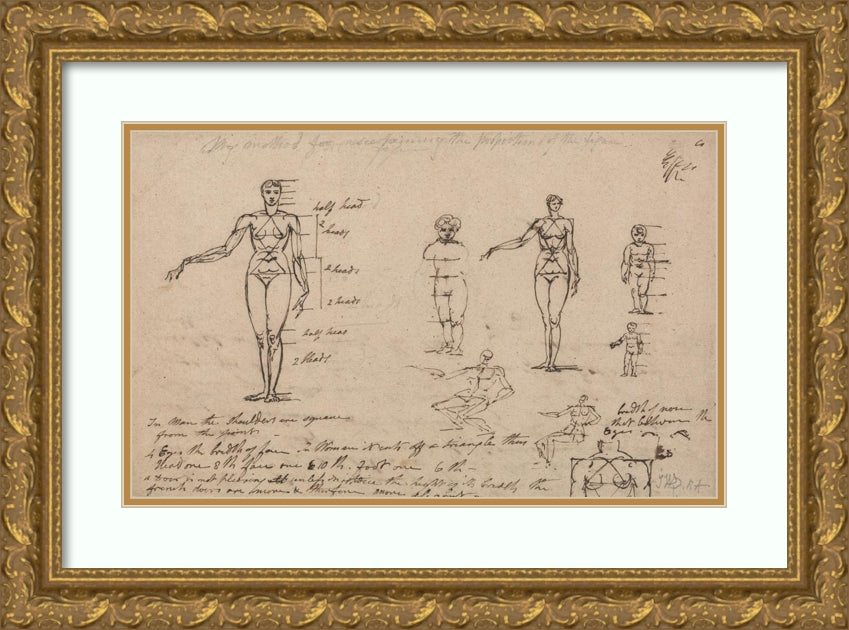 method for ascertaining the Proportions of the figure
half head
2
heads
2 heads
2 heads
half head
2 heads
In Man the shoulders are square
from the points
4 Eyes the bredth of face in Woman it cuts off a triangle thus
Head one 8th face one 10th. foot one 6th
a Door is not pleasing unless twice the hight of its bredth the
french doors are more & therefore more
bredth of nose
that between the
Eyes